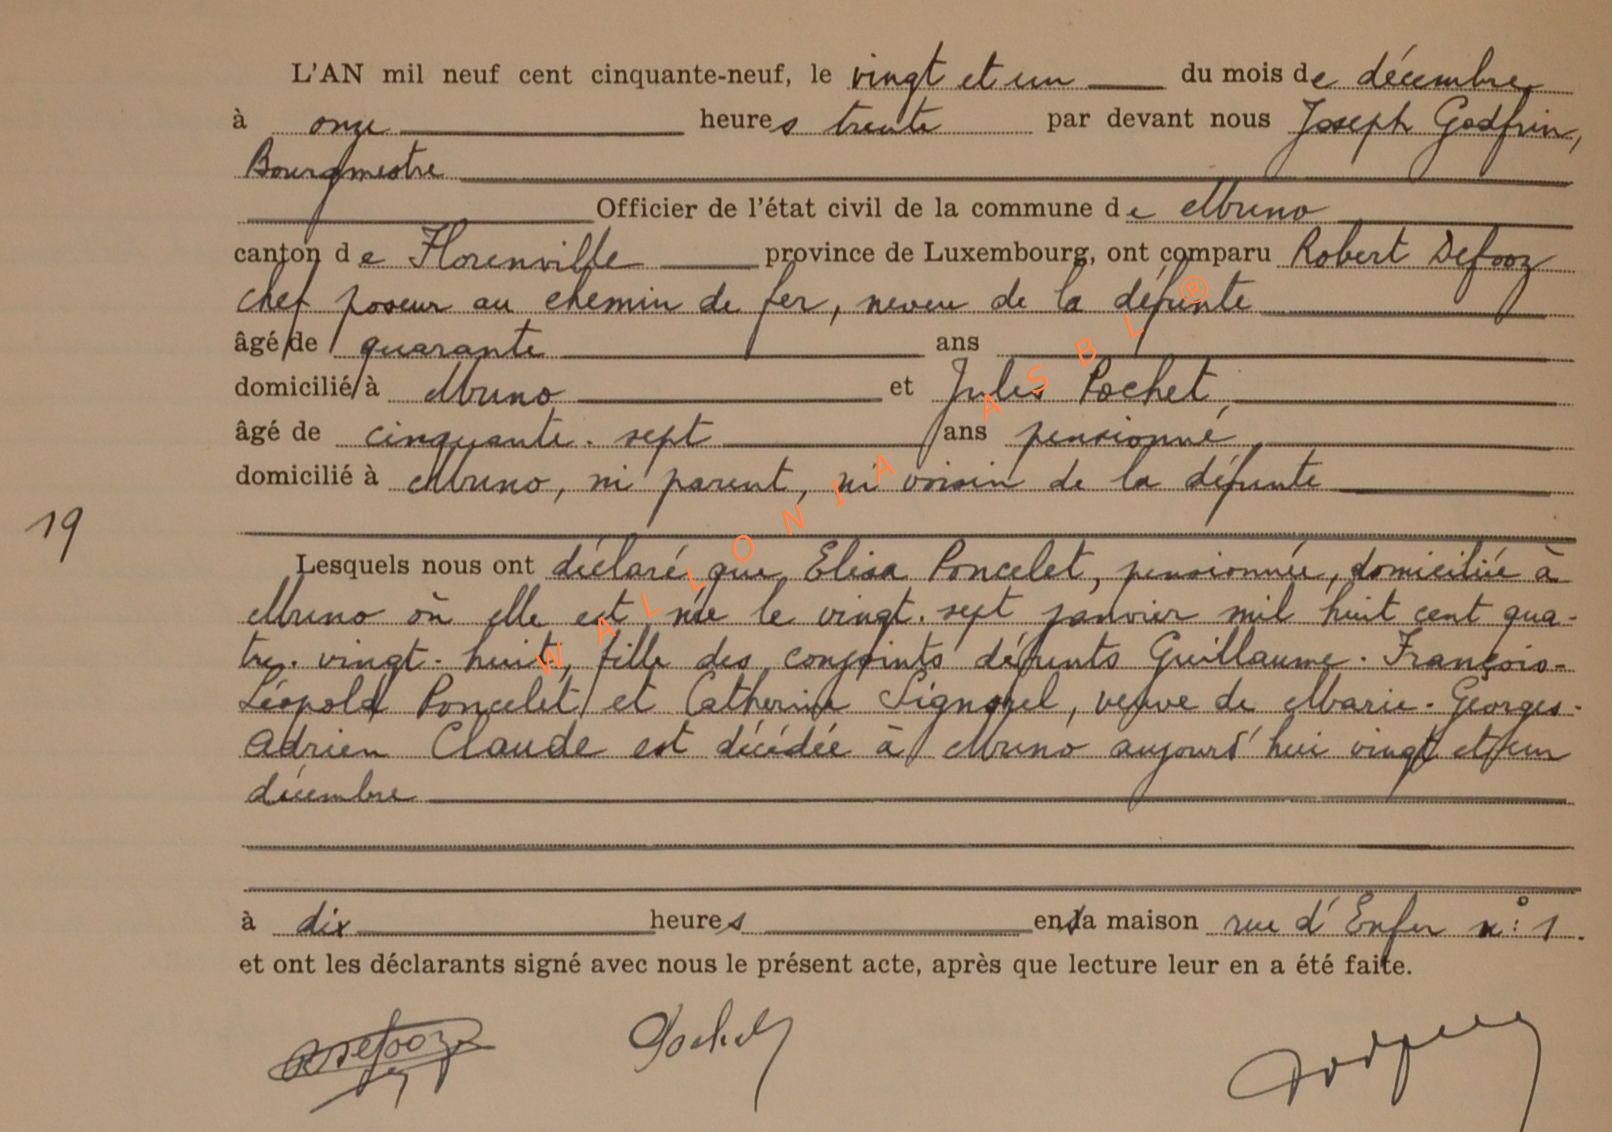 L'AN mil neuf cent cinquante-neuf, le vingt et un du mois de décembre
à onze heures trente par devant nous Joseph Godfrin,
Bourgmestre
Officier de l'état civil de la commune de Muno
canton de Florenville province de Luxembourg, ont comparu Robert Defooz
chef poseur au chemin de fer, neveu de la défunte
âgé de quarante ans
domicilié à Muno et Jules Pochet,
âgé de cinquante-sept ans pensionné,
domicilié à Muno, ni parent, ni voisin de la défunte
19
Lesquels nous ont déclaré que Elisa Poncelet, pensionnée, domiciliée à
Muno où elle est née le vingt-sept janvier mil huit cent qua-
tre-vingt-huit, fille des conjoints défunts Guillaume-François-
Léopold Poncelet et Catherine Signorel, veuve de Marie-Georges-
Adrien Claude est décédée à Muno aujourd'hui vingt et un
décembre
à dix heures en sa maison rue d'Enfer n° 1.
et ont les déclarants signé avec nous le présent acte, après que lecture leur en a été faite.
RDefooz Pochet Godfrin
WALLONIA ASBL ®